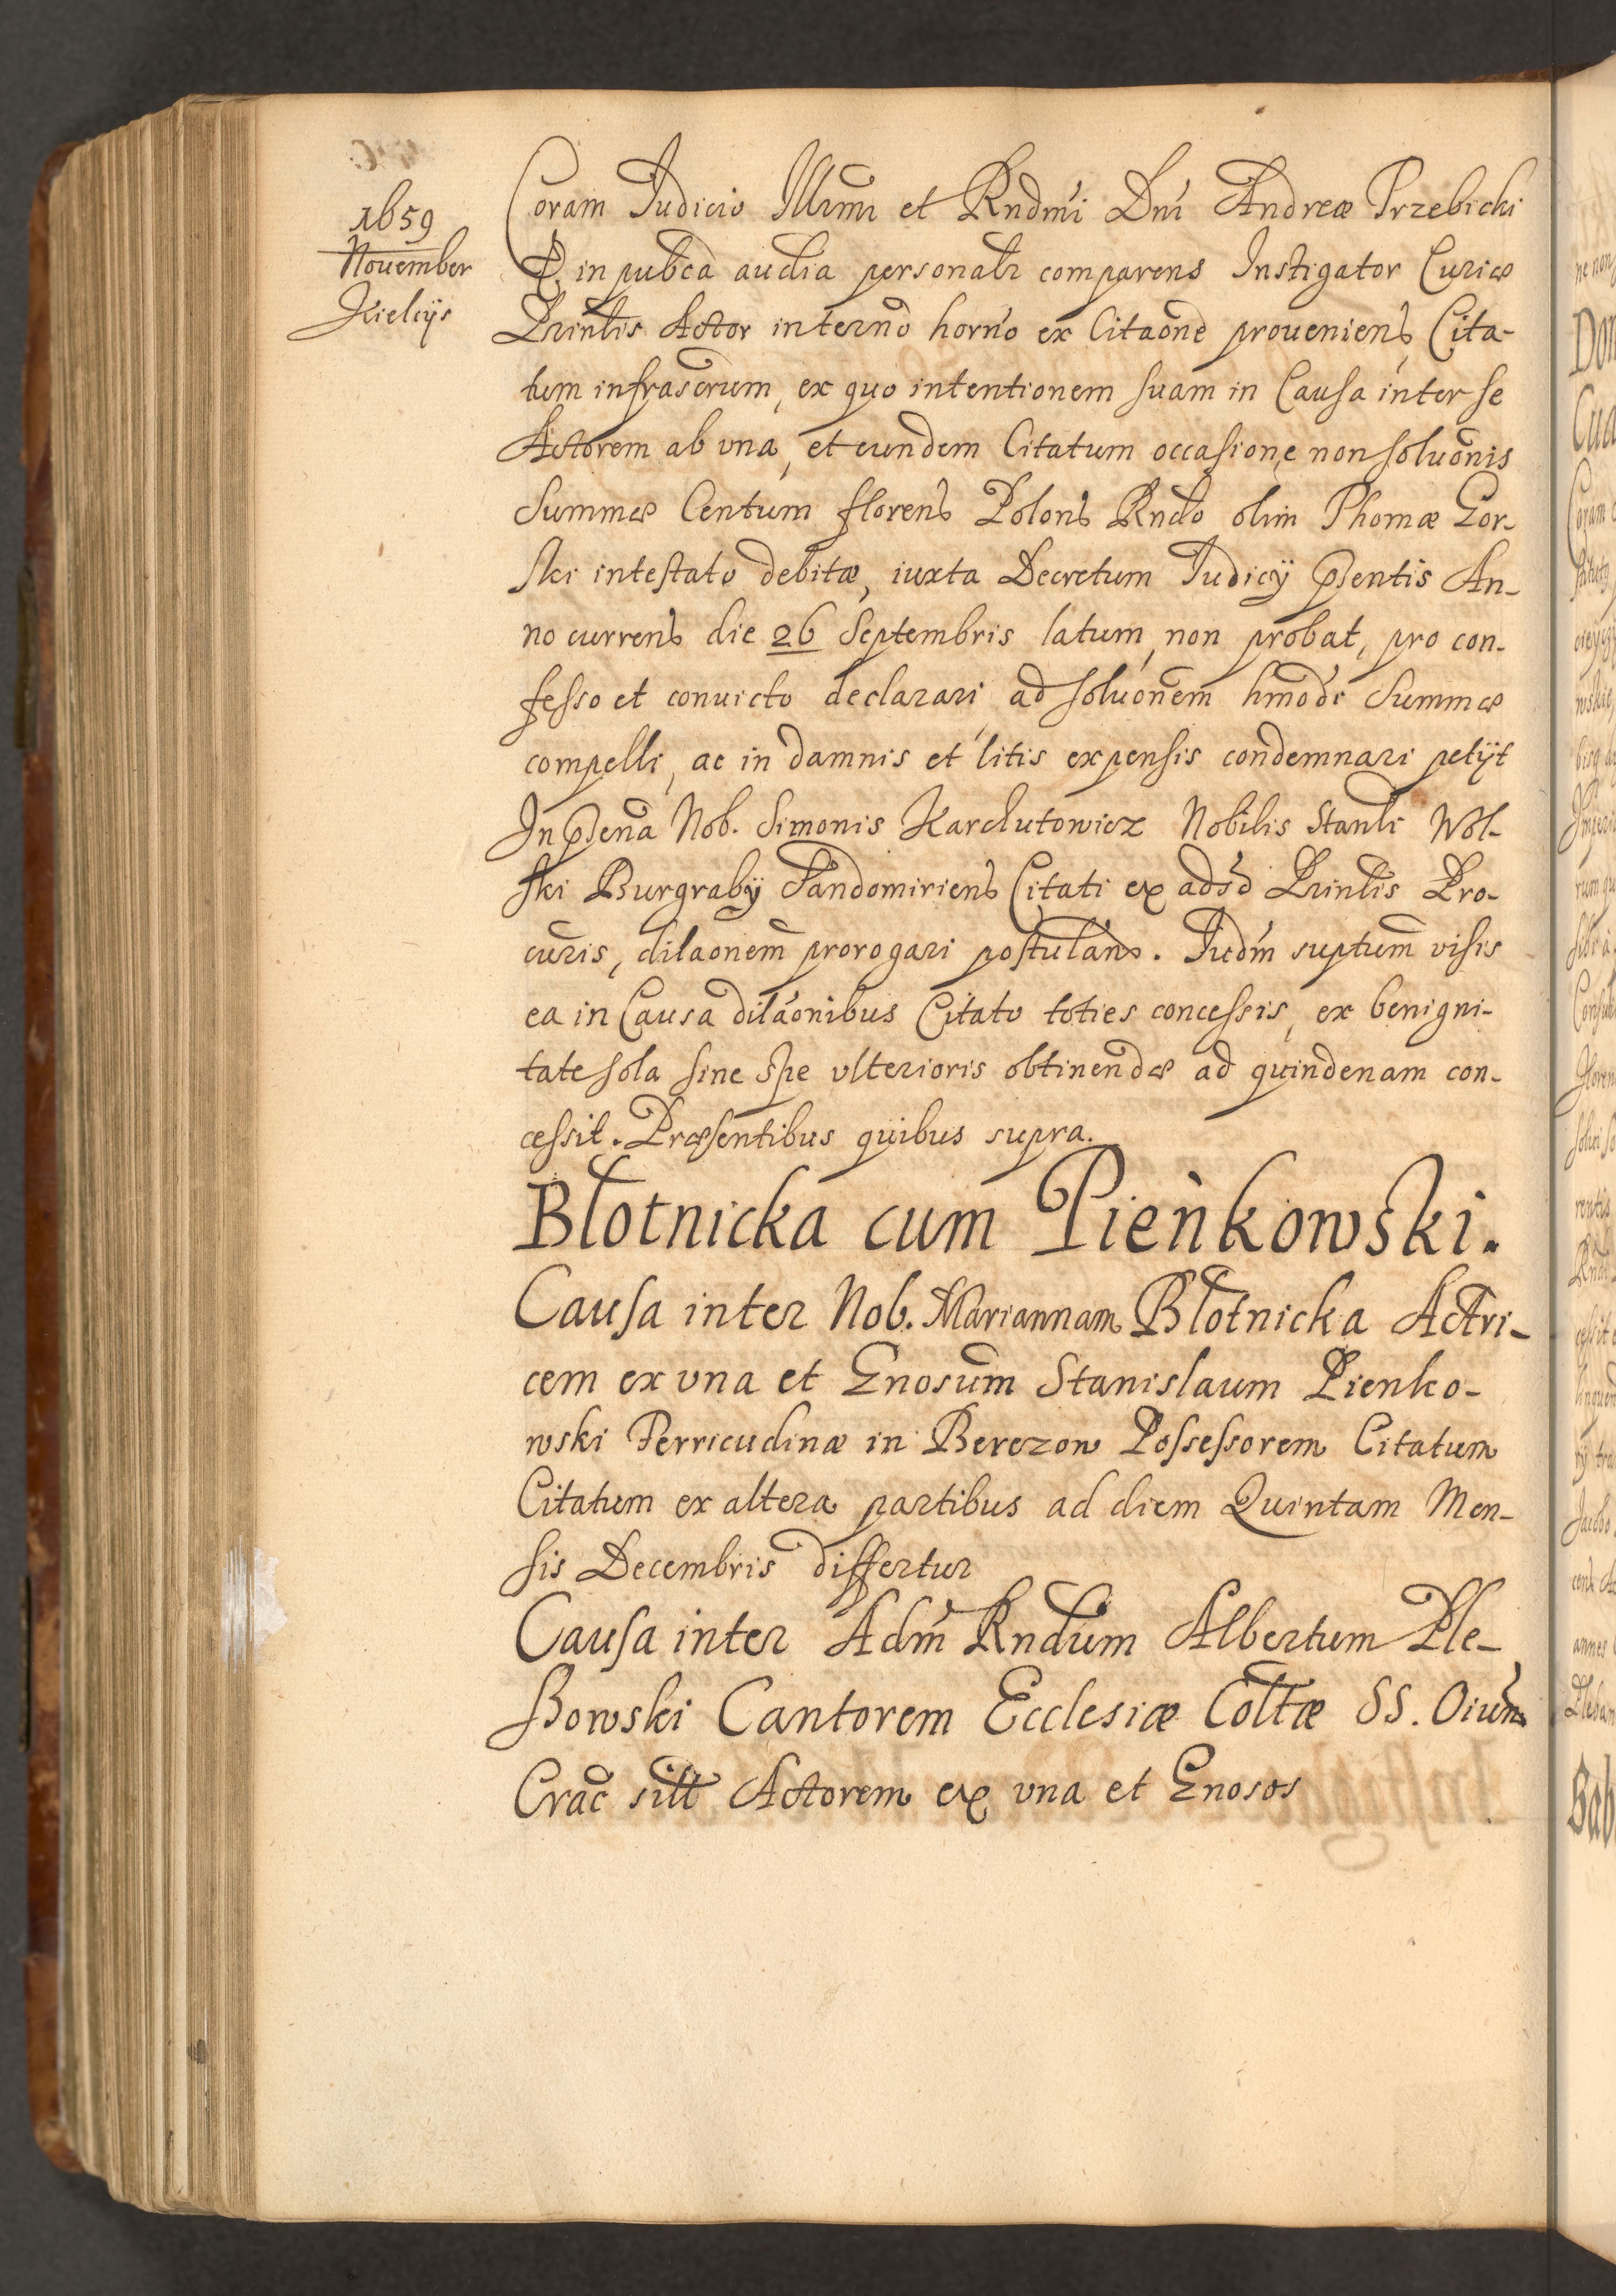 1659
November
Kielcijs
Coram Judicio Illmi et Rndmi Dni Andreæ Trzebicki
E. in pubca audia personalr comparens Instigator Curiæ
Printis Actor in terno horno ex Citaone proueniens Cita-
tum infrascrum, ex quo intentionem suam in Causa inter se
Actorem ab vna, et eundem Citatum occasione non soluonis
Summæ Centum florens Polons Rndo olim Thomæ Gor-
ski intestato debitæ, iuxta Decretum Judicij psentis An-
no currens die 26 Septembris latum, non probat, pro con-
fesso et conuicto declarari, ad soluonem hmodi Summæ
compelli, ac in damnis et litis expensis condemnari petijt
In psena Nob. Simonis Karchutowicz Nobilis Stanli Wol-
ski Burgrabij Sandomiriens Citati ex adso Prinlis Pro-
curis, dilaonem prorogari postulans. Judm suptum visis
ea in Causa dilaonibus Citato toties concessis, ex benigni-
tate sola sine spe vlterioris obtinendæ ad quindenam con-
cessit. Præsentibus quibus supra.
Błotnicka cum Pieńkowski.
Causa inter Nob. Mariannam Błotnicka Actri-
cem ex vna et Gnosum Stanislaum Pienko-
wski Terricudinæ in Berezow Possessorem Citatum
Citatum ex altera partibus ad diem Quintam Men-
sis Decembris differtur
Causa inter Adm Rndum Albertum Ple-
szowski Cantorem Ecclesiæ Coltæ SS. Oium
Crac silt Actorem ex vna et Gnosos